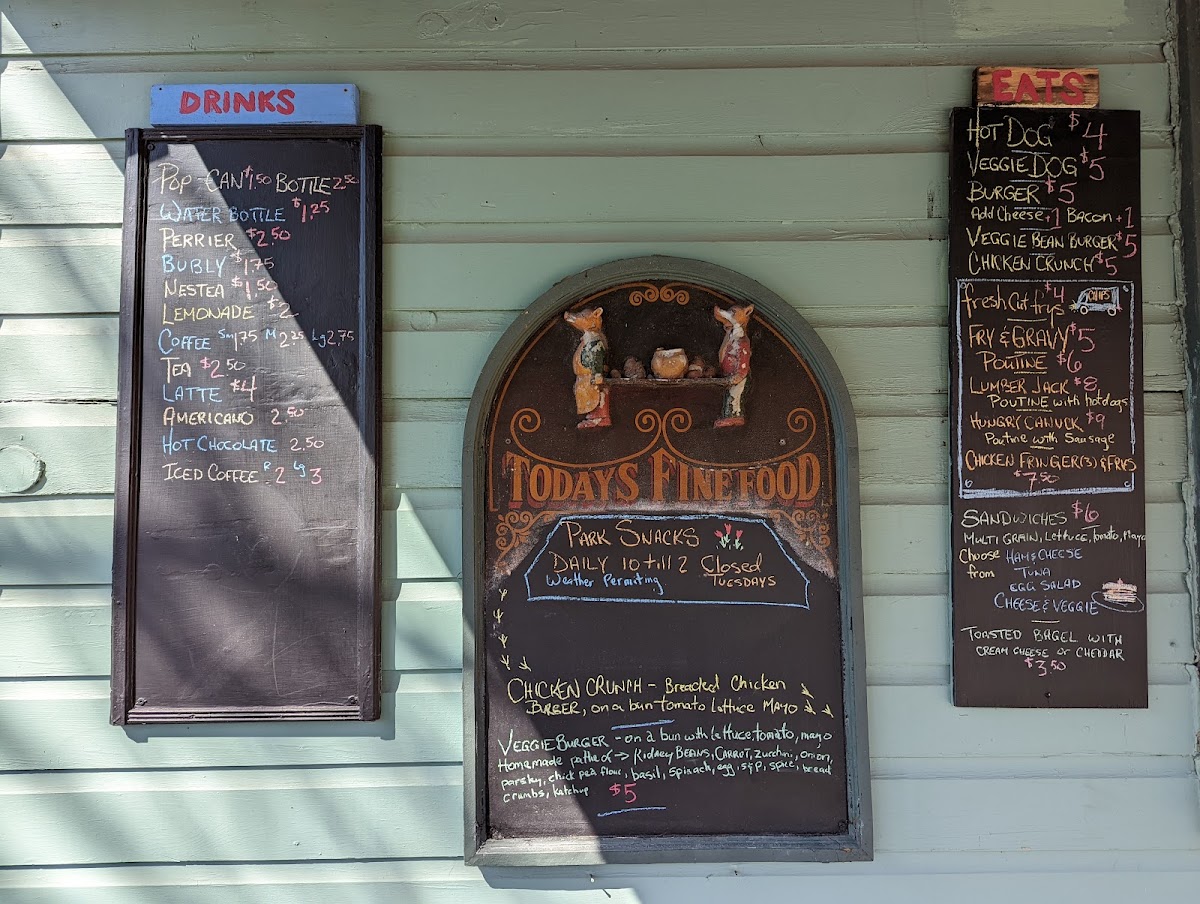 DRINKS
POP - CAN $1.50 BOTTLE 2.50
WATER BOTTLE $1.25
PERRIER $2.50
BUBLY $1.75
NESTEA $1.50
LEMONADE $2
COFFEE Sm 1.75 M 2.25 Lg 2.75
TEA $2.50
LATTE $4
AMERICANO 2.50
HOT CHOCOLATE 2.50
ICED COFFEE R 2 Lg 3
TODAYS FINE FOOD
PARK SNACKS
DAILY 10 till 2 Closed
Weather Permiting TUESDAYS
CHICKEN CRUNCH - Breaded Chicken
BURGER, on a bun - tomato Lettuce MAYO
VEGGIE BURGER - on a bun with lettuce, tomato, mayo
Homemade pattie of → KIDNEY BEANS, CARROT, zucchini, onion,
parsley, chick pea flour, basil, spinach, egg, s&p, spice, bread
crumbs, ketchup $5
EATS
HOT DOG $4
VEGGIE DOG $5
BURGER $5
Add Cheese +1 Bacon +1
VEGGIE BEAN BURGER $5
CHICKEN CRUNCH $5
fresh Cut frys $4 CHIPS
FRY & GRAVY $5
POUTINE $6
LUMBER JACK $8
POUTINE with hotdogs
HUNGRY CANUCK $9
Poutine with Sausage
CHICKEN FRINGER (3) & FRYS
$7.50
SANDWICHES $6
MULTI GRAIN, Lettuce, Tomato, Mayo
Choose HAM & CHEESE
from TUNA
EGG SALAD
CHEESE & VEGGIE
TOASTED BAGEL WITH
CREAM CHEESE or CHEDDAR
$3.50